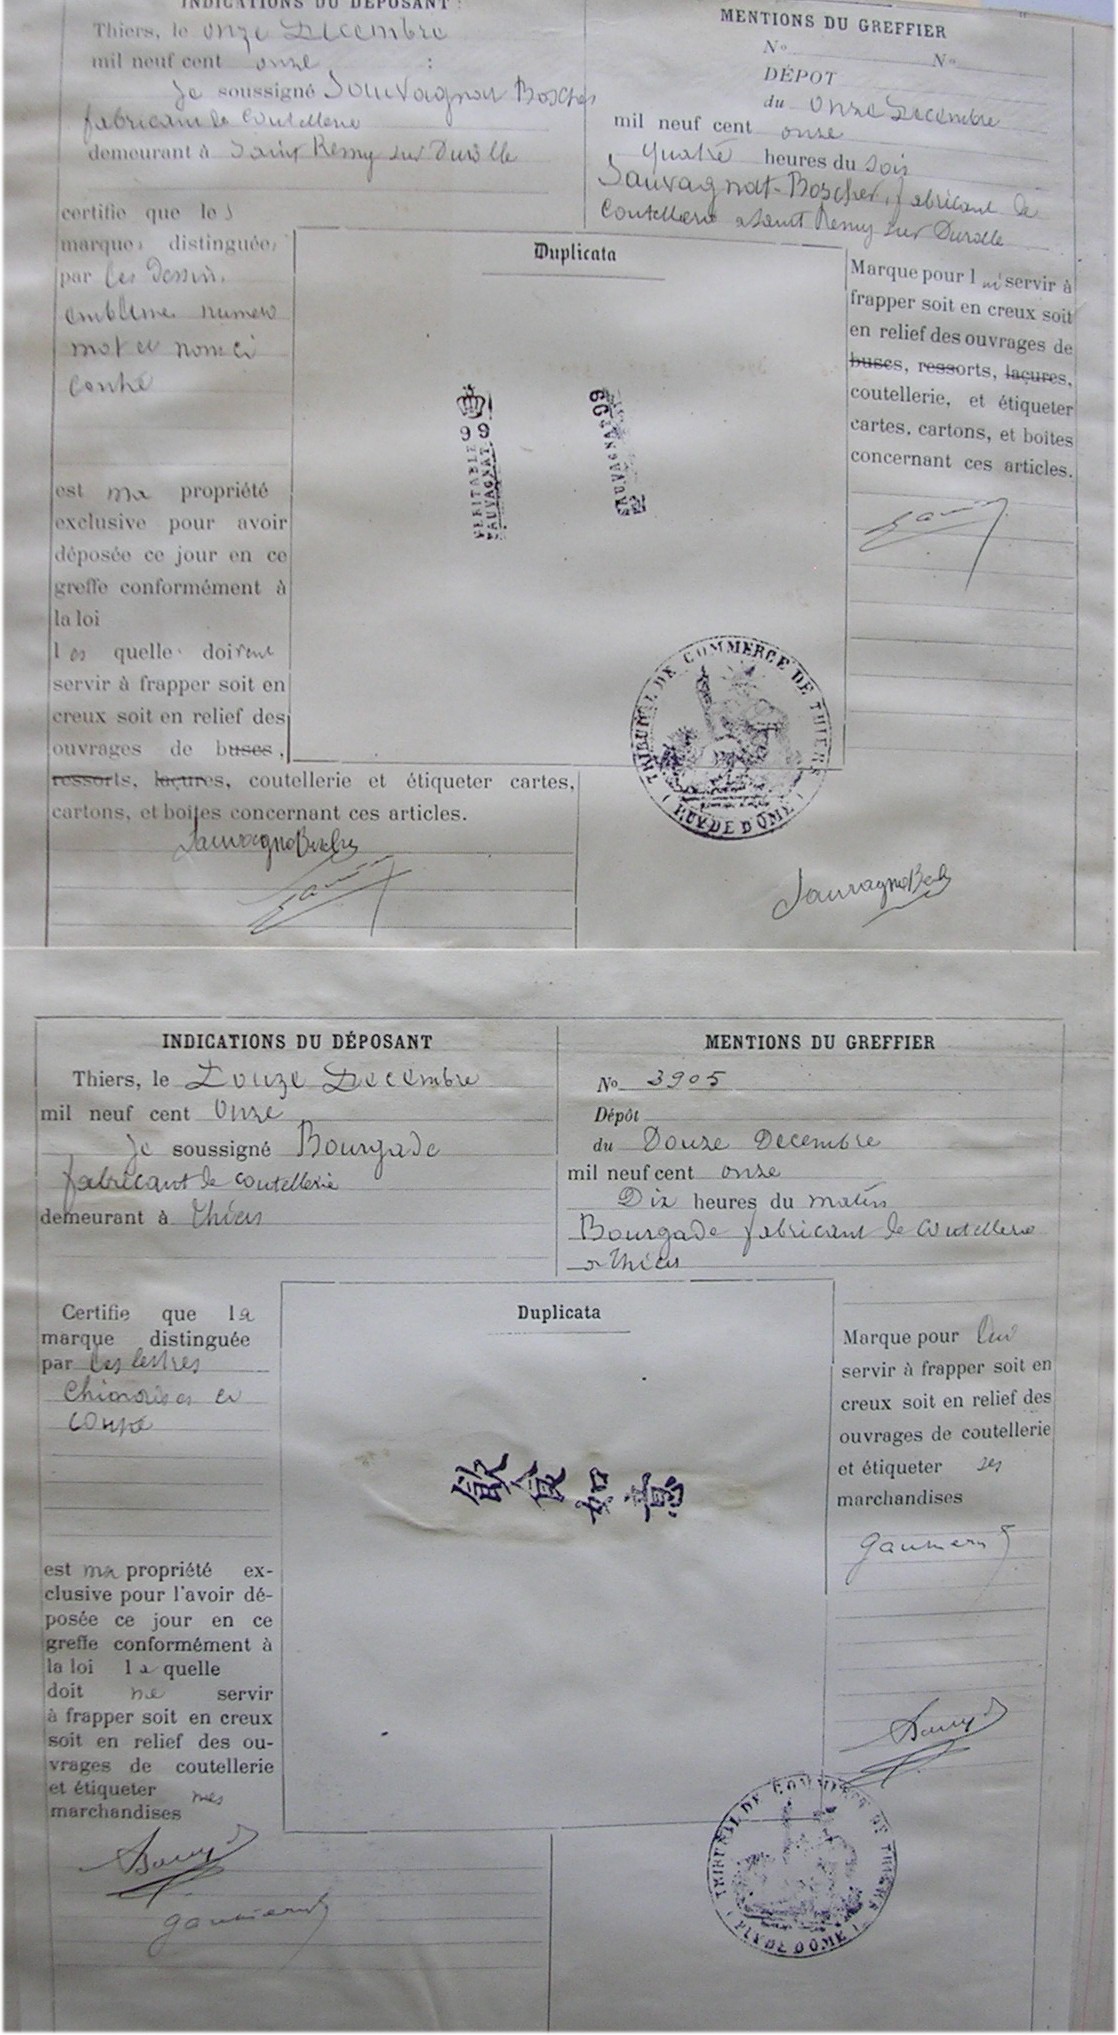 INDICATIONS DU DÉPOSANT
Thiers, le onze Decembre
mil neuf cent onze
Je soussigné Sauvagnat Boscher
fabricant de Coutellerie
demeurant à Saint Remy sur Durolle
certifie que les
marques distinguées
par les dessin,
emblème numero
mot et nom ci
contre
est ma propriété
exclusive pour avoir
déposée ce jour en ce
greffe conformément à
la loi
les quelle doivent
servir à frapper soit en
creux soit en relief des
ouvrages de buses,
ressorts, laçures, coutellerie et étiqueter cartes,
cartons, et boites concernant ces articles.
MENTIONS DU GREFFIER
No No
DÉPOT
du onze Decembre
mil neuf cent onze
quatre heures du soir
Sauvagnat-Boscher, fabricant de
Coutellerie a Saint Remy sur Durolle
Duplicata
99
VERITABLE
SAUVAGNAT
SAUVAGNAT 99
Marque pour lui servir à
frapper soit en creux soit
en relief des ouvrages de
buses, ressorts, laçures,
coutellerie, et étiqueter
cartes, cartons, et boites
concernant ces articles.
TRIBUNAL DE COMMERCE DE THIERS
(PUY DE DÔME)
INDICATIONS DU DÉPOSANT
Thiers, le Douze Decembre
mil neuf cent Onze
Je soussigné Bourgade
fabricant de coutellerie
demeurant à Thiers
Certifie que la
marque distinguée
par les lettres
Chinoises ci
contre
est ma propriété ex-
clusive pour l'avoir dé-
posée ce jour en ce
greffe conformément à
la loi la quelle
doit me servir
à frapper soit en creux
soit en relief des ou-
vrages de coutellerie
et étiqueter mes
marchandises
MENTIONS DU GREFFIER
No 3905
Dépôt
du Douze Decembre
mil neuf cent onze
Dix heures du matin
Bourgade fabricant de Coutellerie
a Thiers
Duplicata
飲食如意
Marque pour lui
servir à frapper soit en
creux soit en relief des
ouvrages de coutellerie
et étiqueter ses
marchandises
TRIBUNAL DE COMMERCE DE THIERS
(PUY DE DÔME)